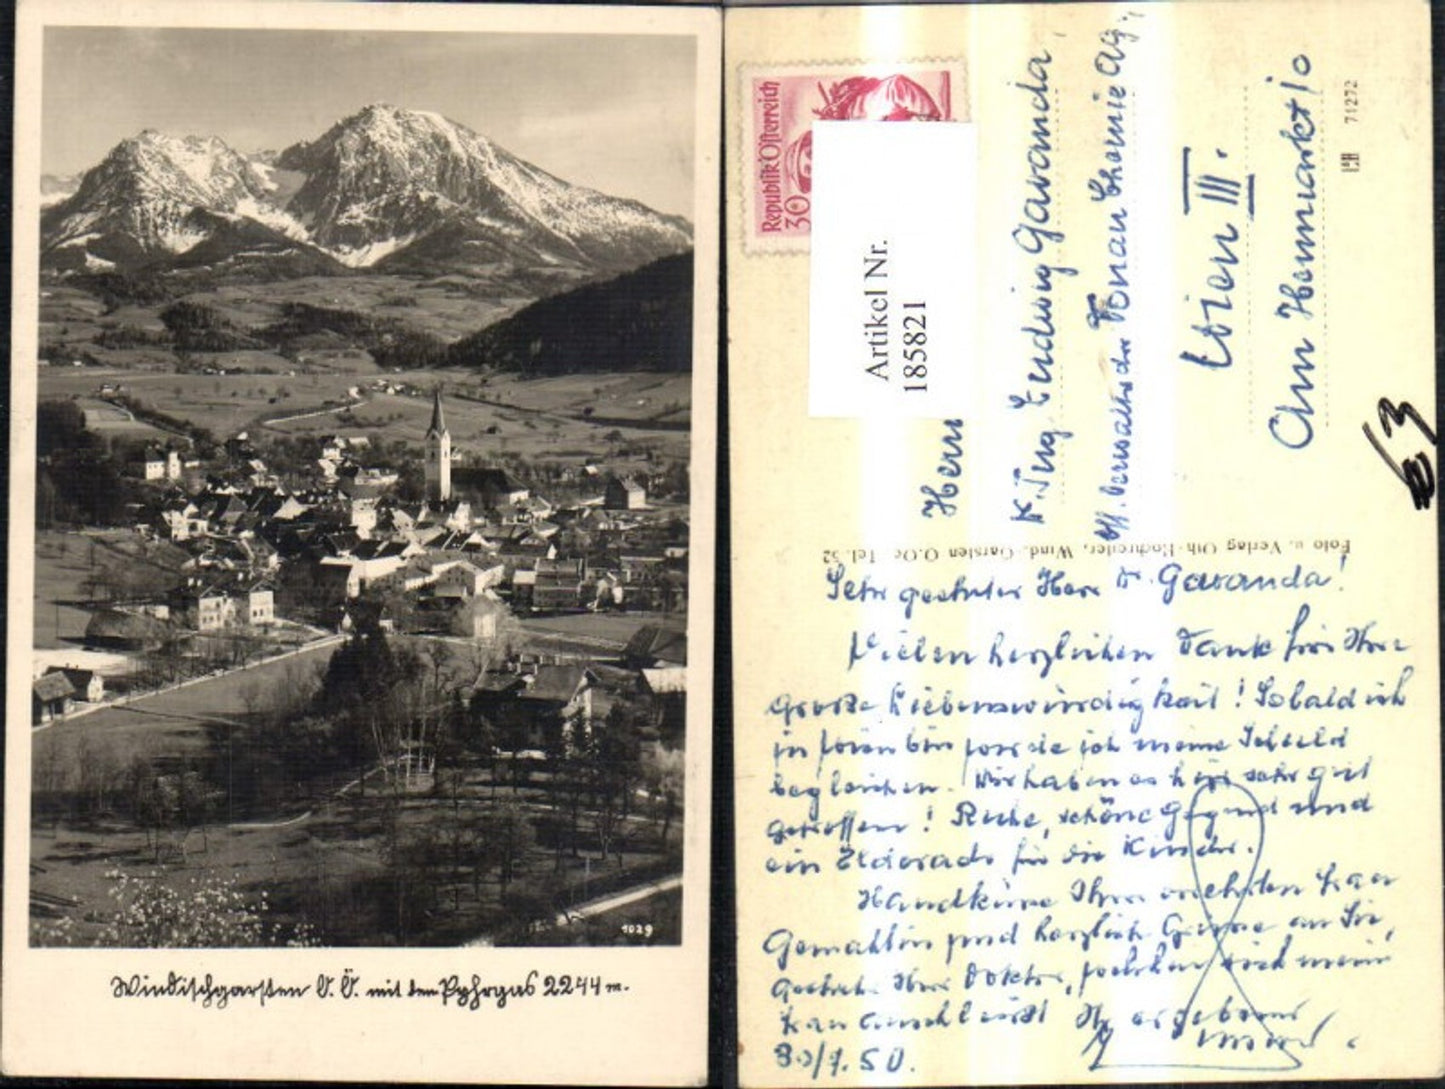 1029
Windischgarsten O. Ö. mit dem Pyhrgas 2244 m.
Republik Österreich
30
Artikel Nr.
185821
Herrn
Dr. Ing. Ludwig Gavanda,
Donau Chemie AG,
Wien III.
Am Heumarkt 10
71272
Foto u. Verlag Oth. Hochreiter, Wind.-Garsten O.Oe. Tel. 52
Sehr geehrter Herr Dr. Gavanda!
Vielen herzlichen Dank für Ihre
große Liebenswürdigkeit! Sobald ich
in Wien bin werde ich meine Schuld
begleichen. Wir haben es hier sehr gut
getroffen! Ruhe, schöne Gegend und
ein Eldorado für die Kinder.
Handküsse Ihrer verehrten Frau
Gemahlin und herzlich Grüsse an Sie,
Herr Doktor, welchen sich meine
Frau anschließt Ihr ergebener
30/7.50.